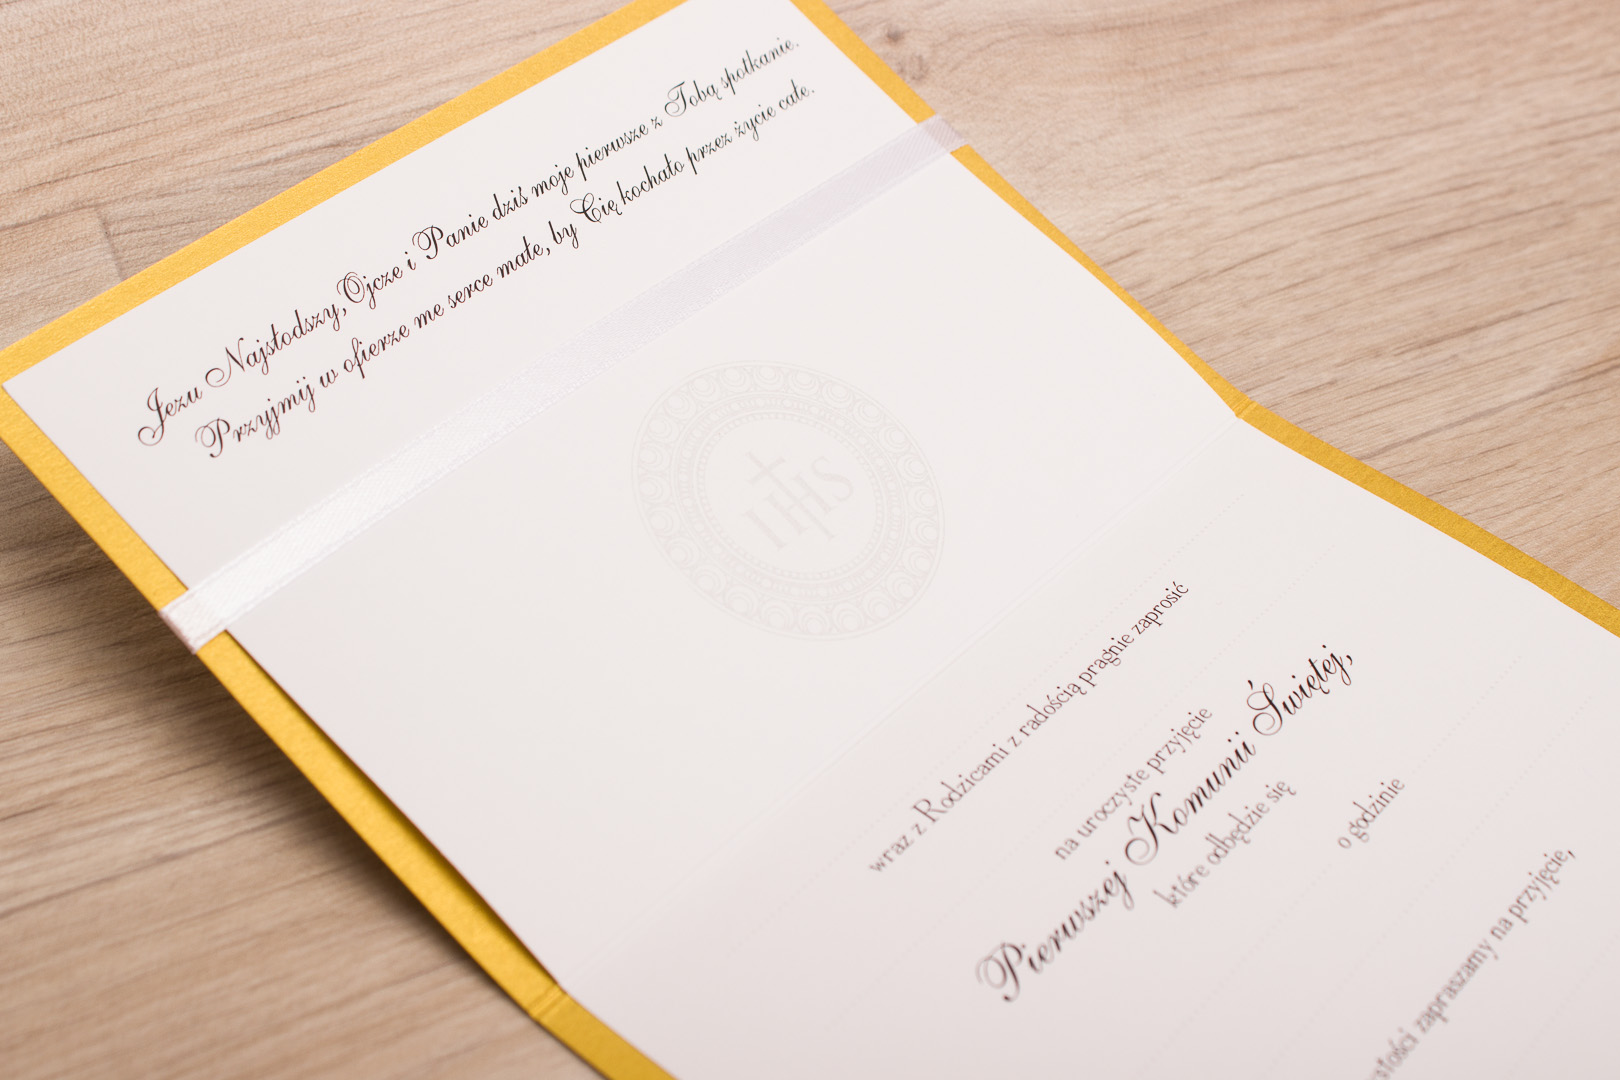 Jezu Najsłodszy, Ojcze i Panie dziś moje pierwsze z Tobą spotkanie.
Przyjmij w ofierze me serce małe, by Cię kochało przez życie całe.
IHS
wraz z Rodzicami z radością pragnie zaprosić
na uroczyste przyjęcie
Pierwszej Komunii Świętej,
które odbędzie się
o godzinie
zapraszamy na przyjęcie,